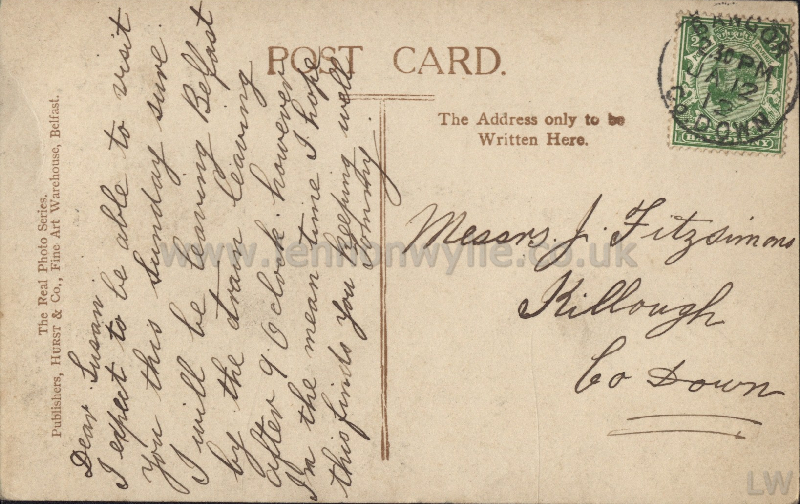 POST CARD.
The Address only to be
Written Here.
The Real Photo Series.
Publishers, HURST & Co., Fine Art Warehouse, Belfast.
Dear Susan
I expect to be able to visit
you this Sunday sure.
I will be leaving Belfast
by the train leaving
after 9 O'clock. however
I'n the mean time I hope
this finds you keeping well
Johnny.
Messrs. J. Fitzsimons
Killough
Co Down
BANGOR
30 PM
JA 12
12
CO. DOWN
www.lennonwylie.co.uk
LW